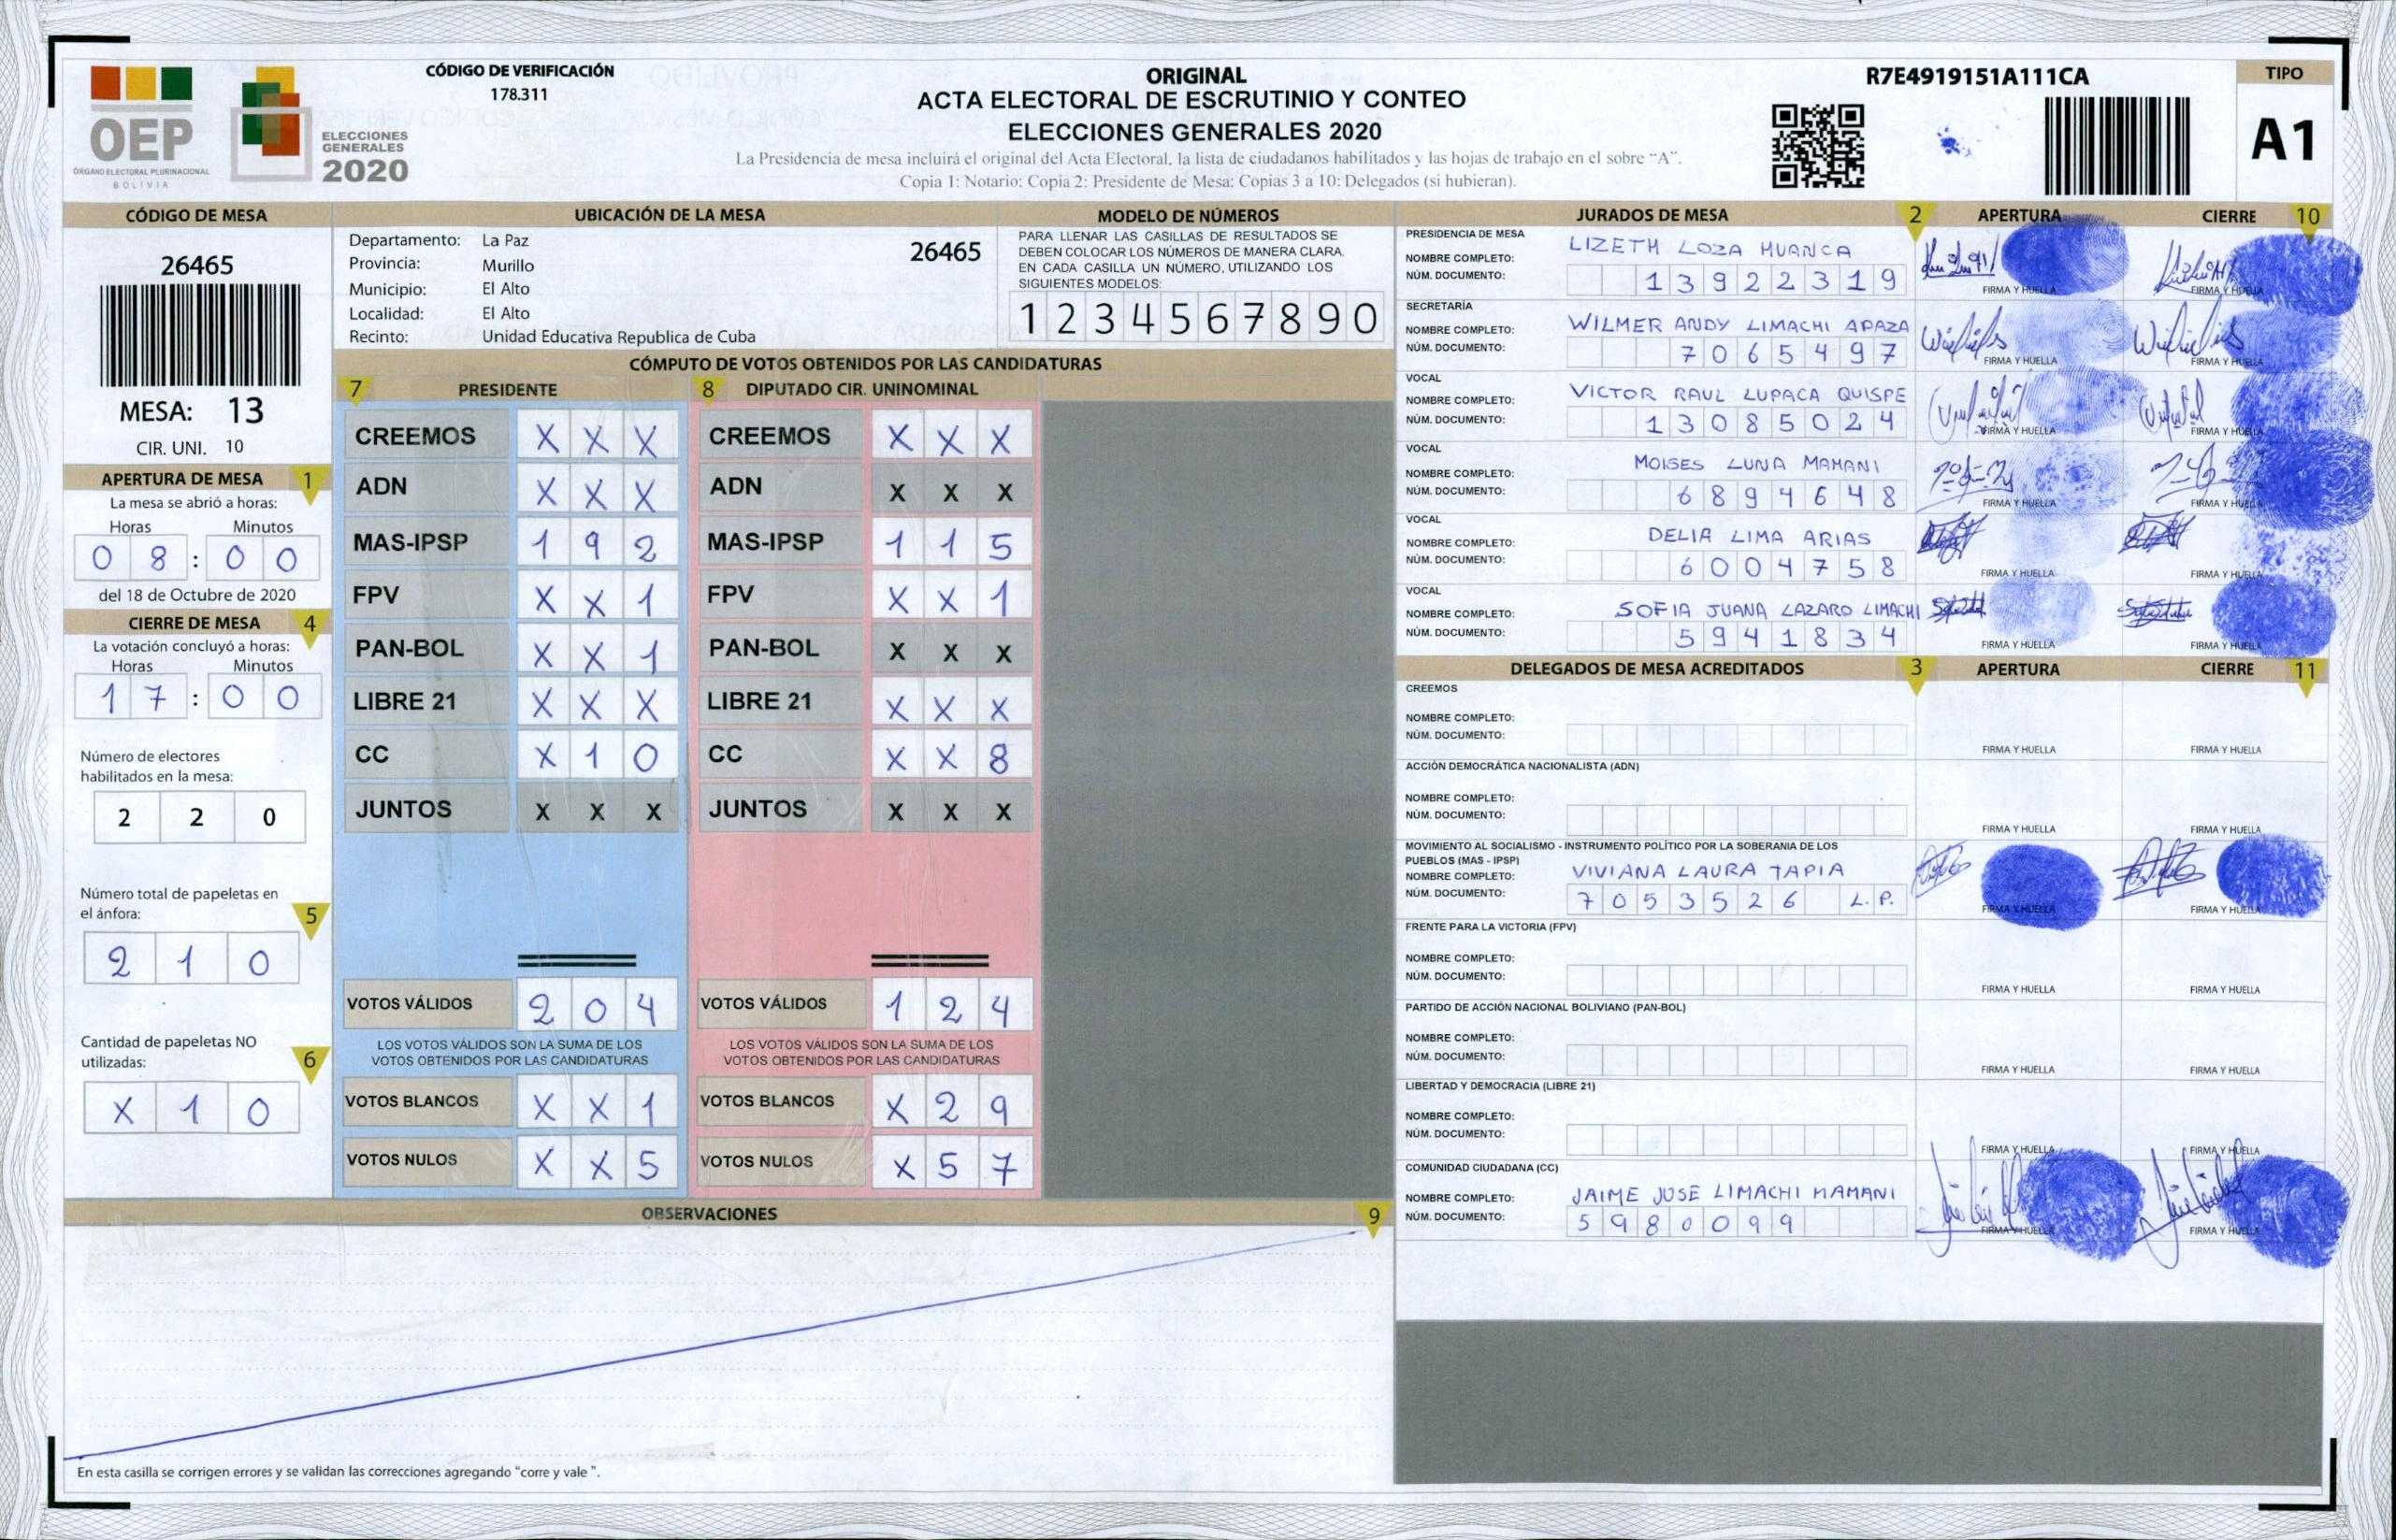 OEP
ÓRGANO ELECTORAL PLURINACIONAL
BOLIVIA
ELECCIONES
GENERALES
2020
CÓDIGO DE VERIFICACIÓN
178.311
ORIGINAL
ACTA ELECTORAL DE ESCRUTINIO Y CONTEO
ELECCIONES GENERALES 2020
La Presidencia de mesa incluirá el original del Acta Electoral, la lista de ciudadanos habilitados y las hojas de trabajo en el sobre "A".
Copia 1: Notario; Copia 2: Presidente de Mesa; Copias 3 a 10: Delegados (si hubieran).
R7E4919151A111CA
TIPO
A1
CÓDIGO DE MESA
26465
MESA: 13
CIR. UNI. 10
APERTURA DE MESA 1
La mesa se abrió a horas:
Horas Minutos
0 8 : 0 0
del 18 de Octubre de 2020
CIERRE DE MESA 4
La votación concluyó a horas:
Horas Minutos
1 7 : 0 0
Número de electores
habilitados en la mesa:
2 2 0
Número total de papeletas en
el ánfora: 5
2 1 0
Cantidad de papeletas NO
utilizadas: 6
X 1 0
UBICACIÓN DE LA MESA
Departamento: La Paz 26465
Provincia: Murillo
Municipio: El Alto
Localidad: El Alto
Recinto: Unidad Educativa Republica de Cuba
MODELO DE NÚMEROS
PARA LLENAR LAS CASILLAS DE RESULTADOS SE
DEBEN COLOCAR LOS NÚMEROS DE MANERA CLARA.
EN CADA CASILLA UN NÚMERO, UTILIZANDO LOS
SIGUIENTES MODELOS:
1 2 3 4 5 6 7 8 9 0
CÓMPUTO DE VOTOS OBTENIDOS POR LAS CANDIDATURAS
7 PRESIDENTE 8 DIPUTADO CIR. UNINOMINAL
CREEMOS X X X CREEMOS X X X
ADN X X X ADN X X X
MAS-IPSP 1 9 2 MAS-IPSP 1 1 5
FPV X X 1 FPV X X 1
PAN-BOL X X 1 PAN-BOL X X X
LIBRE 21 X X X LIBRE 21 X X X
CC X 1 0 CC X X 8
JUNTOS X X X JUNTOS X X X
VOTOS VÁLIDOS 2 0 4 VOTOS VÁLIDOS 1 2 4
LOS VOTOS VÁLIDOS SON LA SUMA DE LOS LOS VOTOS VÁLIDOS SON LA SUMA DE LOS
VOTOS OBTENIDOS POR LAS CANDIDATURAS VOTOS OBTENIDOS POR LAS CANDIDATURAS
VOTOS BLANCOS X X 1 VOTOS BLANCOS X 2 9
VOTOS NULOS X X 5 VOTOS NULOS X 5 7
OBSERVACIONES 9
En esta casilla se corrigen errores y se validan las correcciones agregando "corre y vale ".
JURADOS DE MESA 2 APERTURA CIERRE 10
PRESIDENCIA DE MESA
NOMBRE COMPLETO: LIZETH LOZA HUANCA
NÚM. DOCUMENTO: 1 3 9 2 2 3 1 9
FIRMA Y HUELLA FIRMA Y HUELLA
SECRETARÍA
NOMBRE COMPLETO: WILMER ANDY LIMACHI APAZA
NÚM. DOCUMENTO: 7 0 6 5 4 9 7
FIRMA Y HUELLA FIRMA Y HUELLA
VOCAL
NOMBRE COMPLETO: VICTOR RAUL LUPACA QUISPE
NÚM. DOCUMENTO: 1 3 0 8 5 0 2 4
FIRMA Y HUELLA FIRMA Y HUELLA
VOCAL
NOMBRE COMPLETO: MOISES LUNA MAMANI
NÚM. DOCUMENTO: 6 8 9 4 6 4 8
FIRMA Y HUELLA FIRMA Y HUELLA
VOCAL
NOMBRE COMPLETO: DELIA LIMA ARIAS
NÚM. DOCUMENTO: 6 0 0 4 7 5 8
FIRMA Y HUELLA FIRMA Y HUELLA
VOCAL
NOMBRE COMPLETO: SOFIA JUANA LAZARO LIMACHI
NÚM. DOCUMENTO: 5 9 4 1 8 3 4
FIRMA Y HUELLA FIRMA Y HUELLA
DELEGADOS DE MESA ACREDITADOS 3 APERTURA CIERRE 11
CREEMOS
NOMBRE COMPLETO:
NÚM. DOCUMENTO:
FIRMA Y HUELLA FIRMA Y HUELLA
ACCIÓN DEMOCRÁTICA NACIONALISTA (ADN)
NOMBRE COMPLETO:
NÚM. DOCUMENTO:
FIRMA Y HUELLA FIRMA Y HUELLA
MOVIMIENTO AL SOCIALISMO - INSTRUMENTO POLÍTICO POR LA SOBERANIA DE LOS
PUEBLOS (MAS - IPSP)
NOMBRE COMPLETO: VIVIANA LAURA TAPIA
NÚM. DOCUMENTO: 7 0 5 3 5 2 6 L. P.
FIRMA Y HUELLA FIRMA Y HUELLA
FRENTE PARA LA VICTORIA (FPV)
NOMBRE COMPLETO:
NÚM. DOCUMENTO:
FIRMA Y HUELLA FIRMA Y HUELLA
PARTIDO DE ACCIÓN NACIONAL BOLIVIANO (PAN-BOL)
NOMBRE COMPLETO:
NÚM. DOCUMENTO:
FIRMA Y HUELLA FIRMA Y HUELLA
LIBERTAD Y DEMOCRACIA (LIBRE 21)
NOMBRE COMPLETO:
NÚM. DOCUMENTO:
FIRMA Y HUELLA FIRMA Y HUELLA
COMUNIDAD CIUDADANA (CC)
NOMBRE COMPLETO: JAIME JOSE LIMACHI MAMANI
NÚM. DOCUMENTO: 5 9 8 0 0 9 9
FIRMA Y HUELLA FIRMA Y HUELLA